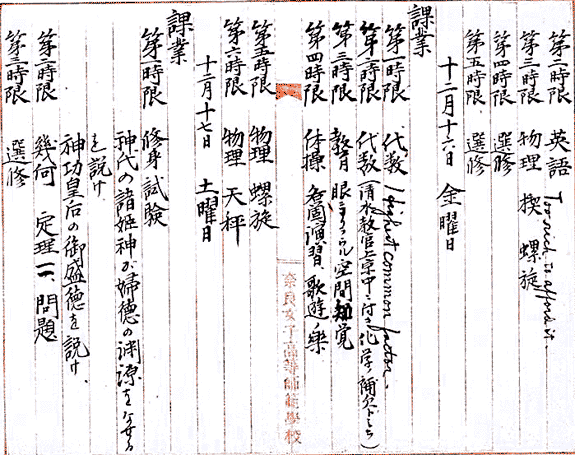 第二時限 英語 Too rich to afford it.
第三時限 物理 楔、螺旋
第四時限 選修
第五時限 選修
十二月十六日 金曜日
課業
第一時限 代数 Highest common factor.
第二時限 代数(清水教官上京中ニ付き化学ノ補欠トシテ)
第三時限 教育 眼ニヨラル空間知覚
第四時限 体操 各個演習、歌遊、楽
第五時限 物理 螺旋
第六時限 物理 天秤
十二月十七日 土曜日
課業
第一時限 修身 試験
神代の諸姫神が婦徳の淵源をなせる
を説け、
神功皇后の御盛徳を説け、
第二時限 幾何 定理一一、問題
第三時限 選修
奈良女子高等師範學校